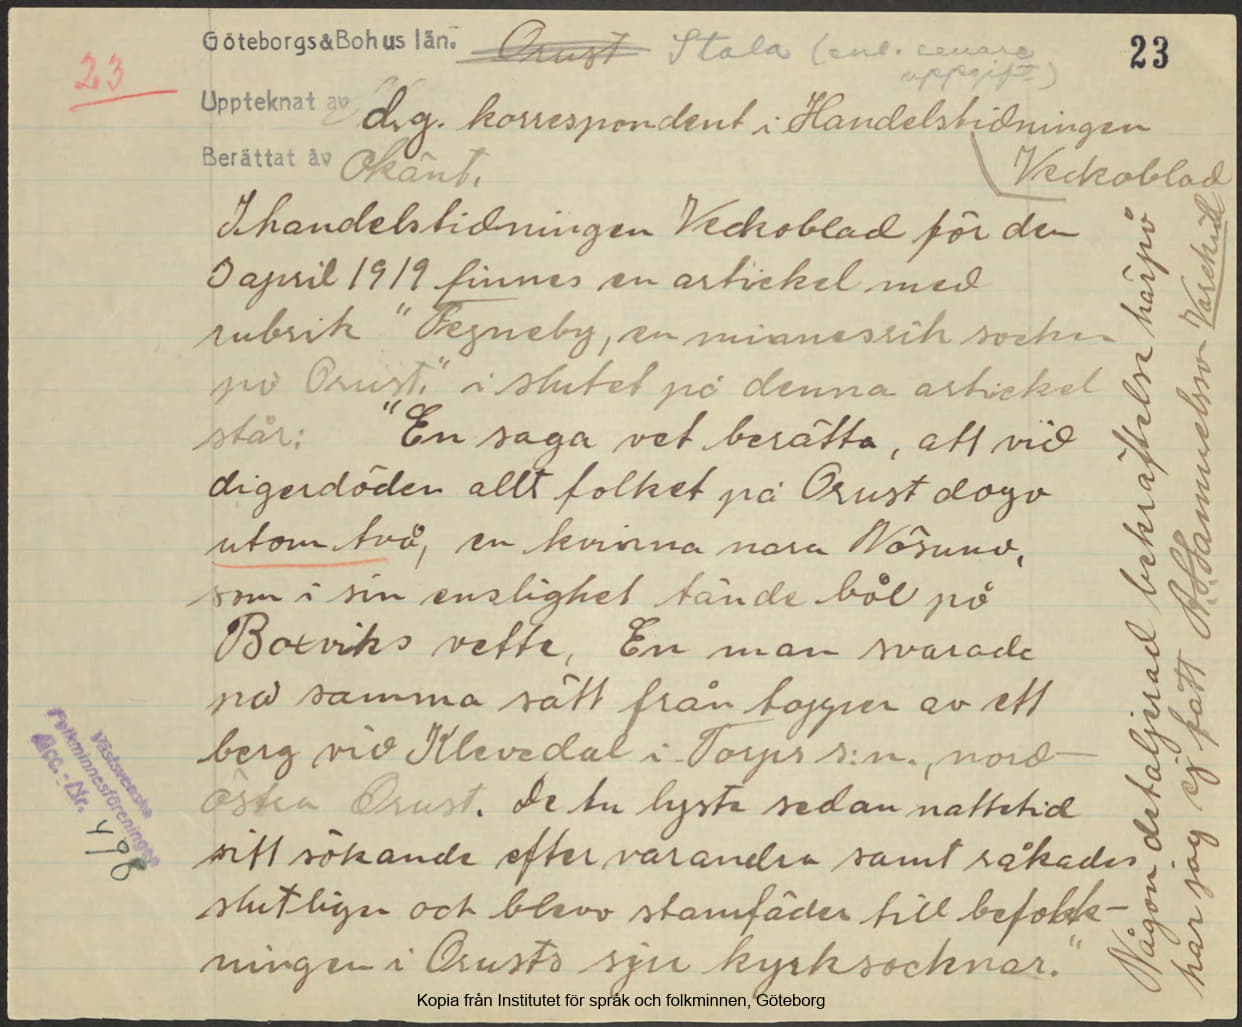 Göteborgs&Bohus län. Orust Stala (enl. senare
uppgift)
23
23
Uppteknat av d.g. korrespondent i Handelstidningen
Veckoblad
Berättat av Okänt.
I handelstidningen Veckoblad för den
april 1919 finnes en artickel med
rubrik "Tegneby, en minnesrik socken
på Orust." i slutet på denna artickel
står: "En saga vet berätta, att vid
digerdöden allt folket på Orust dogo
utom två, en kvinna nara Nösund,
som i sin enslighet tände bål på
Boxviks vette, En man svarade
på samma sätt från toppen av ett
berg vid Klevedal i Torps s:n., nord-
östra Orust. De tu lyste sedan nattetid
sitt sökande efter varandra samt råkades
slutligen och blevo stamfäder till befolk-
ningen i Orusts sju kyrksocknar."
Någon detaljerad bekräftelse härpå
har jag ej fått Samuelsson Varekil
Västsvenska
Folkminnesföreningen
Acc.-Nr.
Kopia från Institutet för språk och folkminnen, Göteborg